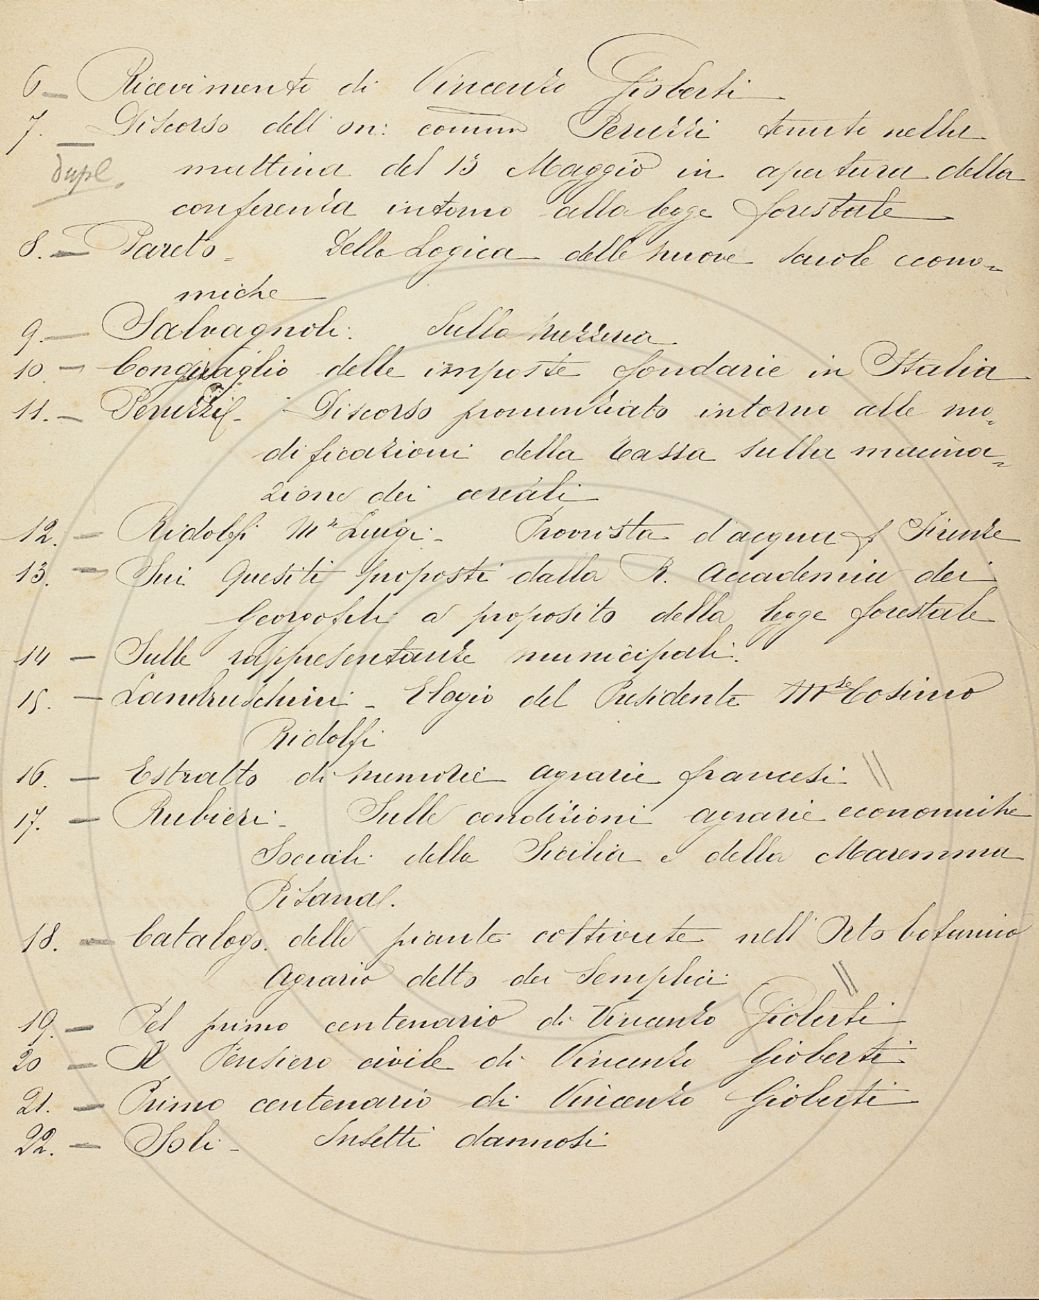 6 — Ricevimento di Vincenzo Gioberti
7. — Discorso dell' on: comm Peruzzi tenuto nella
Dupl.
mattina del 13 Maggio in apertura della
conferenza intorno alla legge forestale
8. — Pareto - Della Logica delle nuove scuole econo=
miche
9 — Salvagnoli. Sulla
10 — Conguaglio delle imposte fondarie in Italia
11. — Peruzzi - Discorso pronunziato intorno alle mo=
dificazioni della tassa sulla macina=
zione dei cereali
12. — Ridolfi Mse Luigi - Provvista d'acqua Firenze
13. — Sui Quesiti proposti dalla R. Accademia dei
Georgofili a proposito della legge forestale
14 — Sulle rappresentanze municipali.
15. — Lambruschini - Elogio del Presidente Mse Cosimo
Ridolfi
16. — Estratto di memorie agrarie francesi //
17. — Rubieri - Sulle condizioni agrarie economiche
Sociali della Sicilia e della Maremma
Pisana.
18. — Catalogo. delle piante coltivate nell' Orto botanico
Agrario detto dei Semplici //
19. — Pel primo centenario di Vincenzo Gioberti
20 — Il Pensiero civile di Vincenzo Gioberti
21. — Primo centenario di Vincenzo Gioberti
22. — Soli - Insetti dannosi